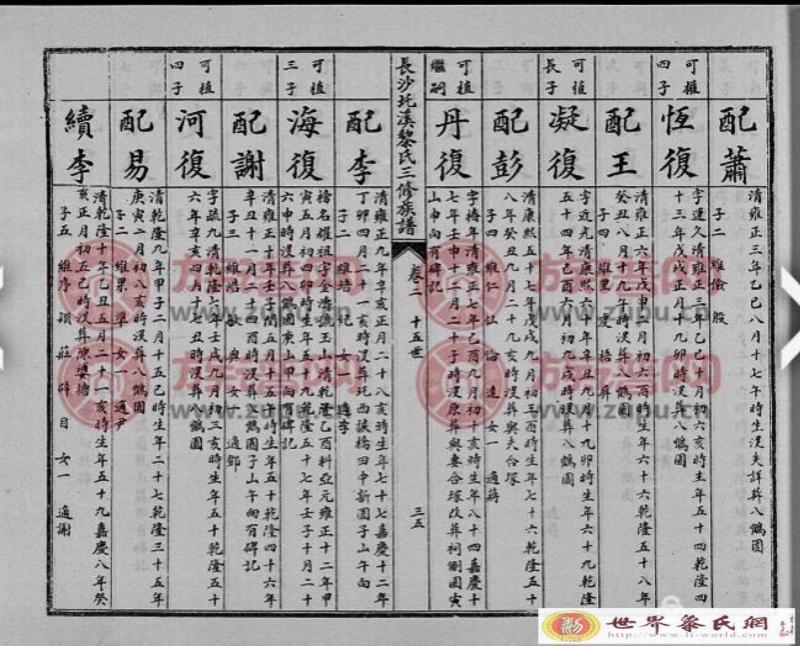 配蕭
清雍正三年乙巳八月十七午時生沒失詳葬八鶴圍
子二 維儉 殷
可權
四子
恆復
字運久清雍正三年乙巳十月初六亥時生年五十四乾隆四
十三年戊戌正月十九卯時沒葬八鶴圍
配王
清雍正六年戊申二月初六酉時生年六十六乾隆五十八年
癸丑八月十九午時沒葬八鶴圍
子四 維里
可植
長子
凝復
字近元清康熙六十年辛丑九月十九卯時生年六十九乾隆
五十四年己酉六月初九戌時沒葬八鶴圍
配彭
清康熙五十七年戊戌九月初三酉時生年七十六乾隆五十
八年癸丑九月二十九亥時沒葬與夫合塚
子四 維仁 位 倫 達 女一 適蔣
可植
繼嗣
丹復
字椿年清雍正七年己酉九月初十亥時生年八十四嘉慶十
七年壬申十二月二十子時沒原葬與妻合塚改葬祠側園寅
山申向有碑記
長沙㘰溪黎氏三修族譜
卷二 十五世
三五
配李
清雍正九年辛亥正月二十八亥時生年七十七嘉慶十二年
丁卯四月二十一亥時沒葬㘰西嶺橋田中新園子山午向
子二 維培 紀 女一 適李
可植
三子
海復
榜名耀祖字金濤號玉山清乾隆乙酉科亞元雍正十二年甲
寅五月初四卯時生年五十九乾隆五十七年壬子十月二十
六申時沒葬八鶴圍庚山甲向有碑記
配謝
清雍正十年壬子閏五月十五午時生年五十乾隆四十六年
辛丑十一月二十四酉時沒葬八鶴圍子山午向有碑記
子三 維浩 敏 與 女一 適鄭
可植
四子
河復
字疏九清乾隆六年壬戌九月初三亥時生年五十乾隆五十
六年辛亥四月十七丑時沒葬八鶴圍
配易
清乾隆九年甲子二月十五巳時生年二十七乾隆三十五年
庚寅二月初八亥時沒葬八鶴圍
子二 維果 準 女一 適尹
續李
清乾隆十年乙丑五月二十一亥時生年五十九嘉慶八年癸
亥正月初五巳時沒葬原婆塘
子五 維序 頌 莊 碎 目 女一 適謝
族譜网
www.zupu.cn
世界黎氏網
http://www.li-world.com